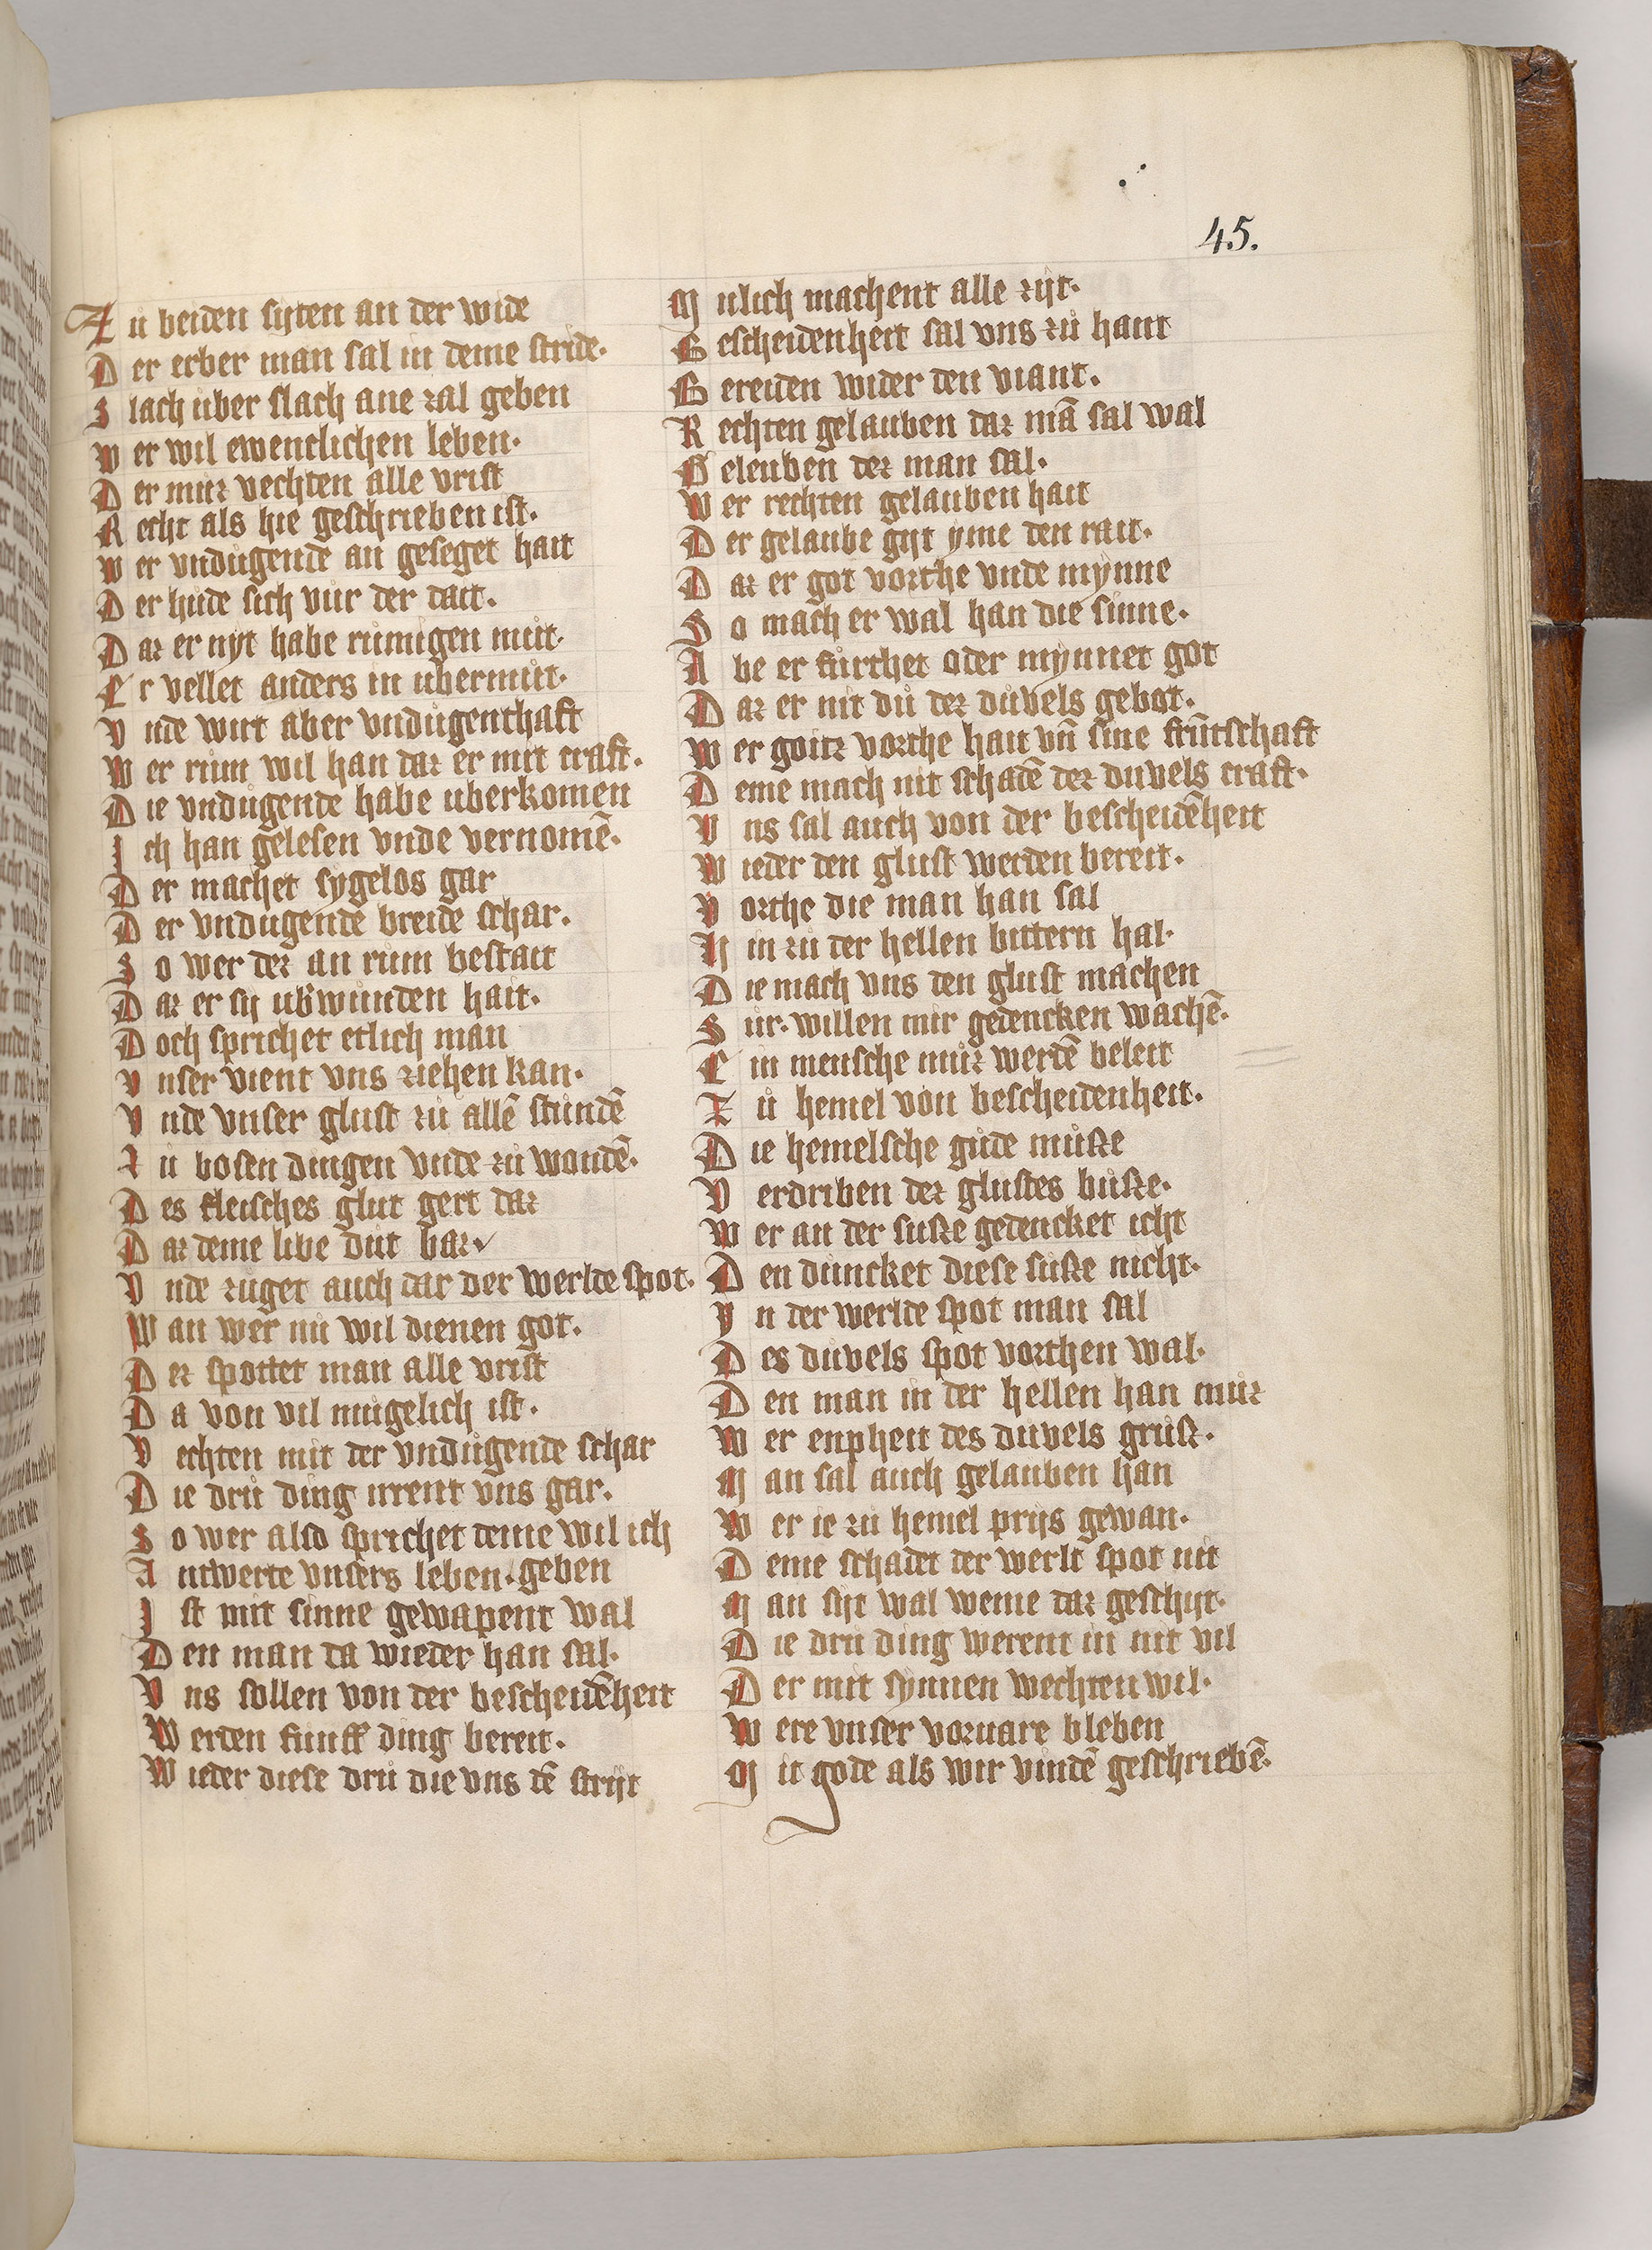 45.
Zu beiden syten an der wide
Der erber man sal in deme stride.
Slach uber slach ane zal geben
Wer wil ewentlichen leben.
Der muz vechten alle vrist
Recht als hie geschrieben ist.
Wer vndugende an geseget hait
Der hude sich vur der dait.
Daz er nyt habe rumigen mut.
Er vellet anders in ubermůt.
Vnde wirt aber vndugenthaft
Wer rům wil han daz er mit craft.
Die vndugende habe uberkomen
Ich han gelesen vnde vernomē.
Der machet sygelos gar
Der vndugende breide schar.
So wer dez an rům bestait
Daz er sy ubwunden hait.
Doch sprichet etlich man
Vnser vient vns ziehen kan.
Vnde vnser glust zů allē stundē
Zu bosen dingen vnde zů wondē.
Des fleisches glut gert daz
Daz deme libe dut baz
Vnde zuget auch daz der werlde spot.
Wan wer nů wil dienen got.
Dez spottet man alle vrist
Da von vil mugelich ist.
Vechten mit der vndůgende schar
Die drů ding irrent vns gar.
So wer also sprichet deme wil ich
Antwerte vnsers leben. geben
Ist mit sinne gewapent wal
Den man da wieder han sal.
Vns sollen von der bescheidēheit
Werden funff ding bereit.
Wieder diese drů die vns dē strijt
Mulich machent alle zijt.
Bescheidenheit sal vns zů hant
Bereiden wider den viant.
Rechten gelauben daz mā sal wal
Geleuben dez man sal.
Wer rechten gelauben hait
Der gelaube gijt yme den rait.
Daz er got vorthe vnde mynne
So mach er wal han die sinne.
Abe er fůrthet oder mynnet got
Daz er nit dů dez důvels gebot.
Wer goitz vorthe hait vñ sine frūtschaft
Deme mach nit schadē dez duvels craft.
Vns sal auch von der bescheidēheit
Wieder den glust werden bereit.
Vorthe die man han sal
Hin zů der hellen bittern hal.
Die mach vns den glust machen
Sur. willen mir gedencken wachē.
Ein mensche můz werdē beleit
Zů hemel von bescheidenheit.
Die hemelsche gůde můße
Verdriben dez glustes bůße.
Wer an der suße gedencket icht
Den důncket diese sůße nicht.
Vn der werlde spot man sal
Des důvels spot vorthen wal.
Den man in der hellen han můz
Wer enpheit des duvels grůß.
Man sal auch gelauben han
Wer ie zů hemel prijs gewan.
Deme schadet der werlt spot nit
Man sijt wal weme daz geschijt.
Die drů ding werent in nit vil
Der mit synnen wechten wil.
Were vnser vorvare bleben
Mit gode als wir vindē geschriebē.